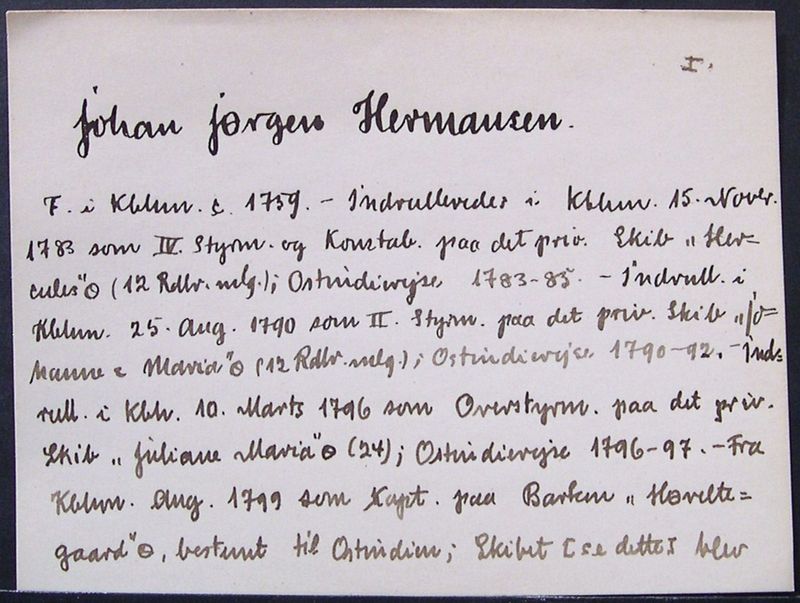 I.
Johan Jørgen Hermansen.
F. i Kbhvn. c. 1759. - Indrulleredes i Kbhvn. 15. Novbr.
1783 som IV. Styrm. og Konstab. paa det priv. Skib „Her-
cules" (12 Rdlr. mlg.); Ostindierejse 1783-85. - Indrull. i
Kbhvn. 25. Aug. 1790 som II. Styrm. paa det priv. Skib „Jo-
hanne & Maria" (12 Rdlr. mlg.); Ostindierejse 1790-92. - Ind=
rull. i Kbh. 10. Marts 1796 som Overstyrm. paa det priv.
Skib „Juliane Maria" (24); Ostindierejse 1796-97. - Fra
Kbhvn. Aug. 1799 som Kapt. paa Barken „Høvelte=
gaard", bestemt til Ostindien; Skibet [se dette] blev